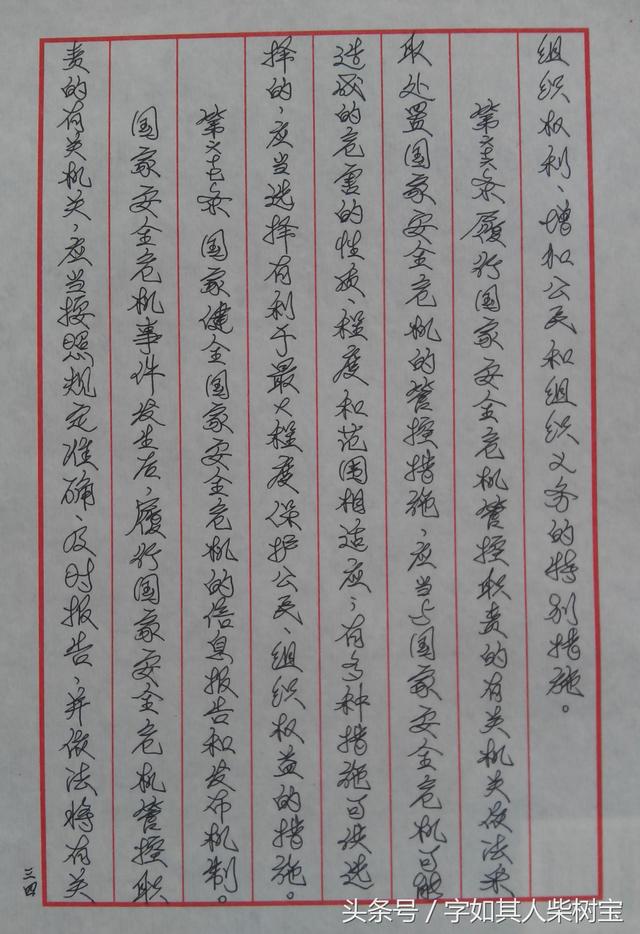 组织权利、增加公民和组织义务的特别措施。
第六十六条 履行国家安全危机管控职责的有关机关依法采
取处置国家安全危机的管控措施，应当与国家安全危机可能
造成的危害的性质、程度和范围相适应；有多种措施可供选
择的，应当选择有利于最大程度保护公民、组织权益的措施。
第六十七条 国家健全国家安全危机的信息报告和发布机制。
国家安全危机事件发生后，履行国家安全危机管控职
责的有关机关，应当按照规定准确、及时报告，并依法将有关
三四
头条号／字如其人柴树宝